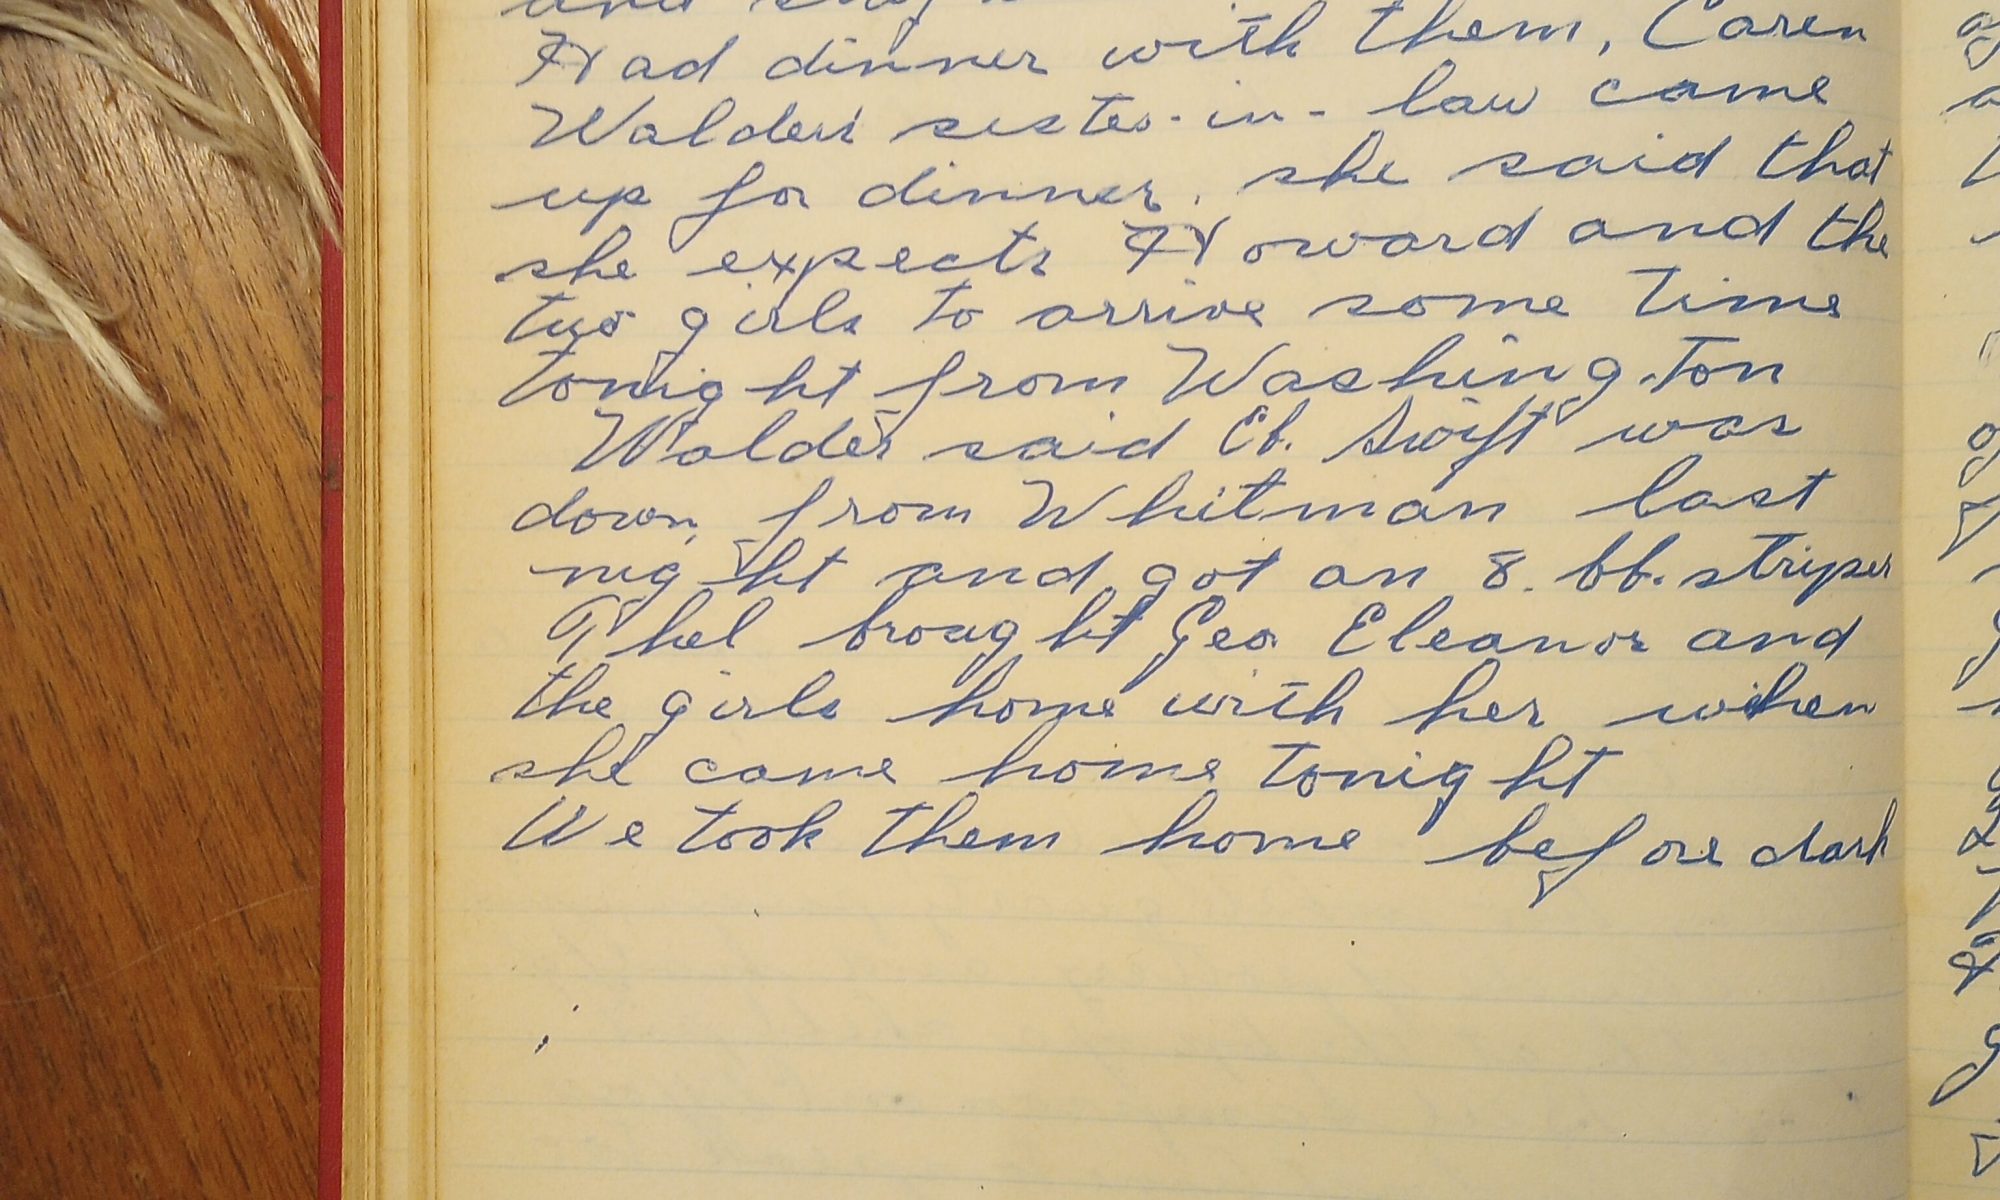 and
Had dinner with them, Caren
Walder's sister-in-law came
up for dinner. she said that
she expects Howard and the
two girls to arrive some time
tonight from Washington
Walder said Eb. Swift was
down, from Whitman last
night and got an 8. lb. striper
Thel brought Geo Eleanor and
the girls home with her when
she came home tonight
We took them home before dark